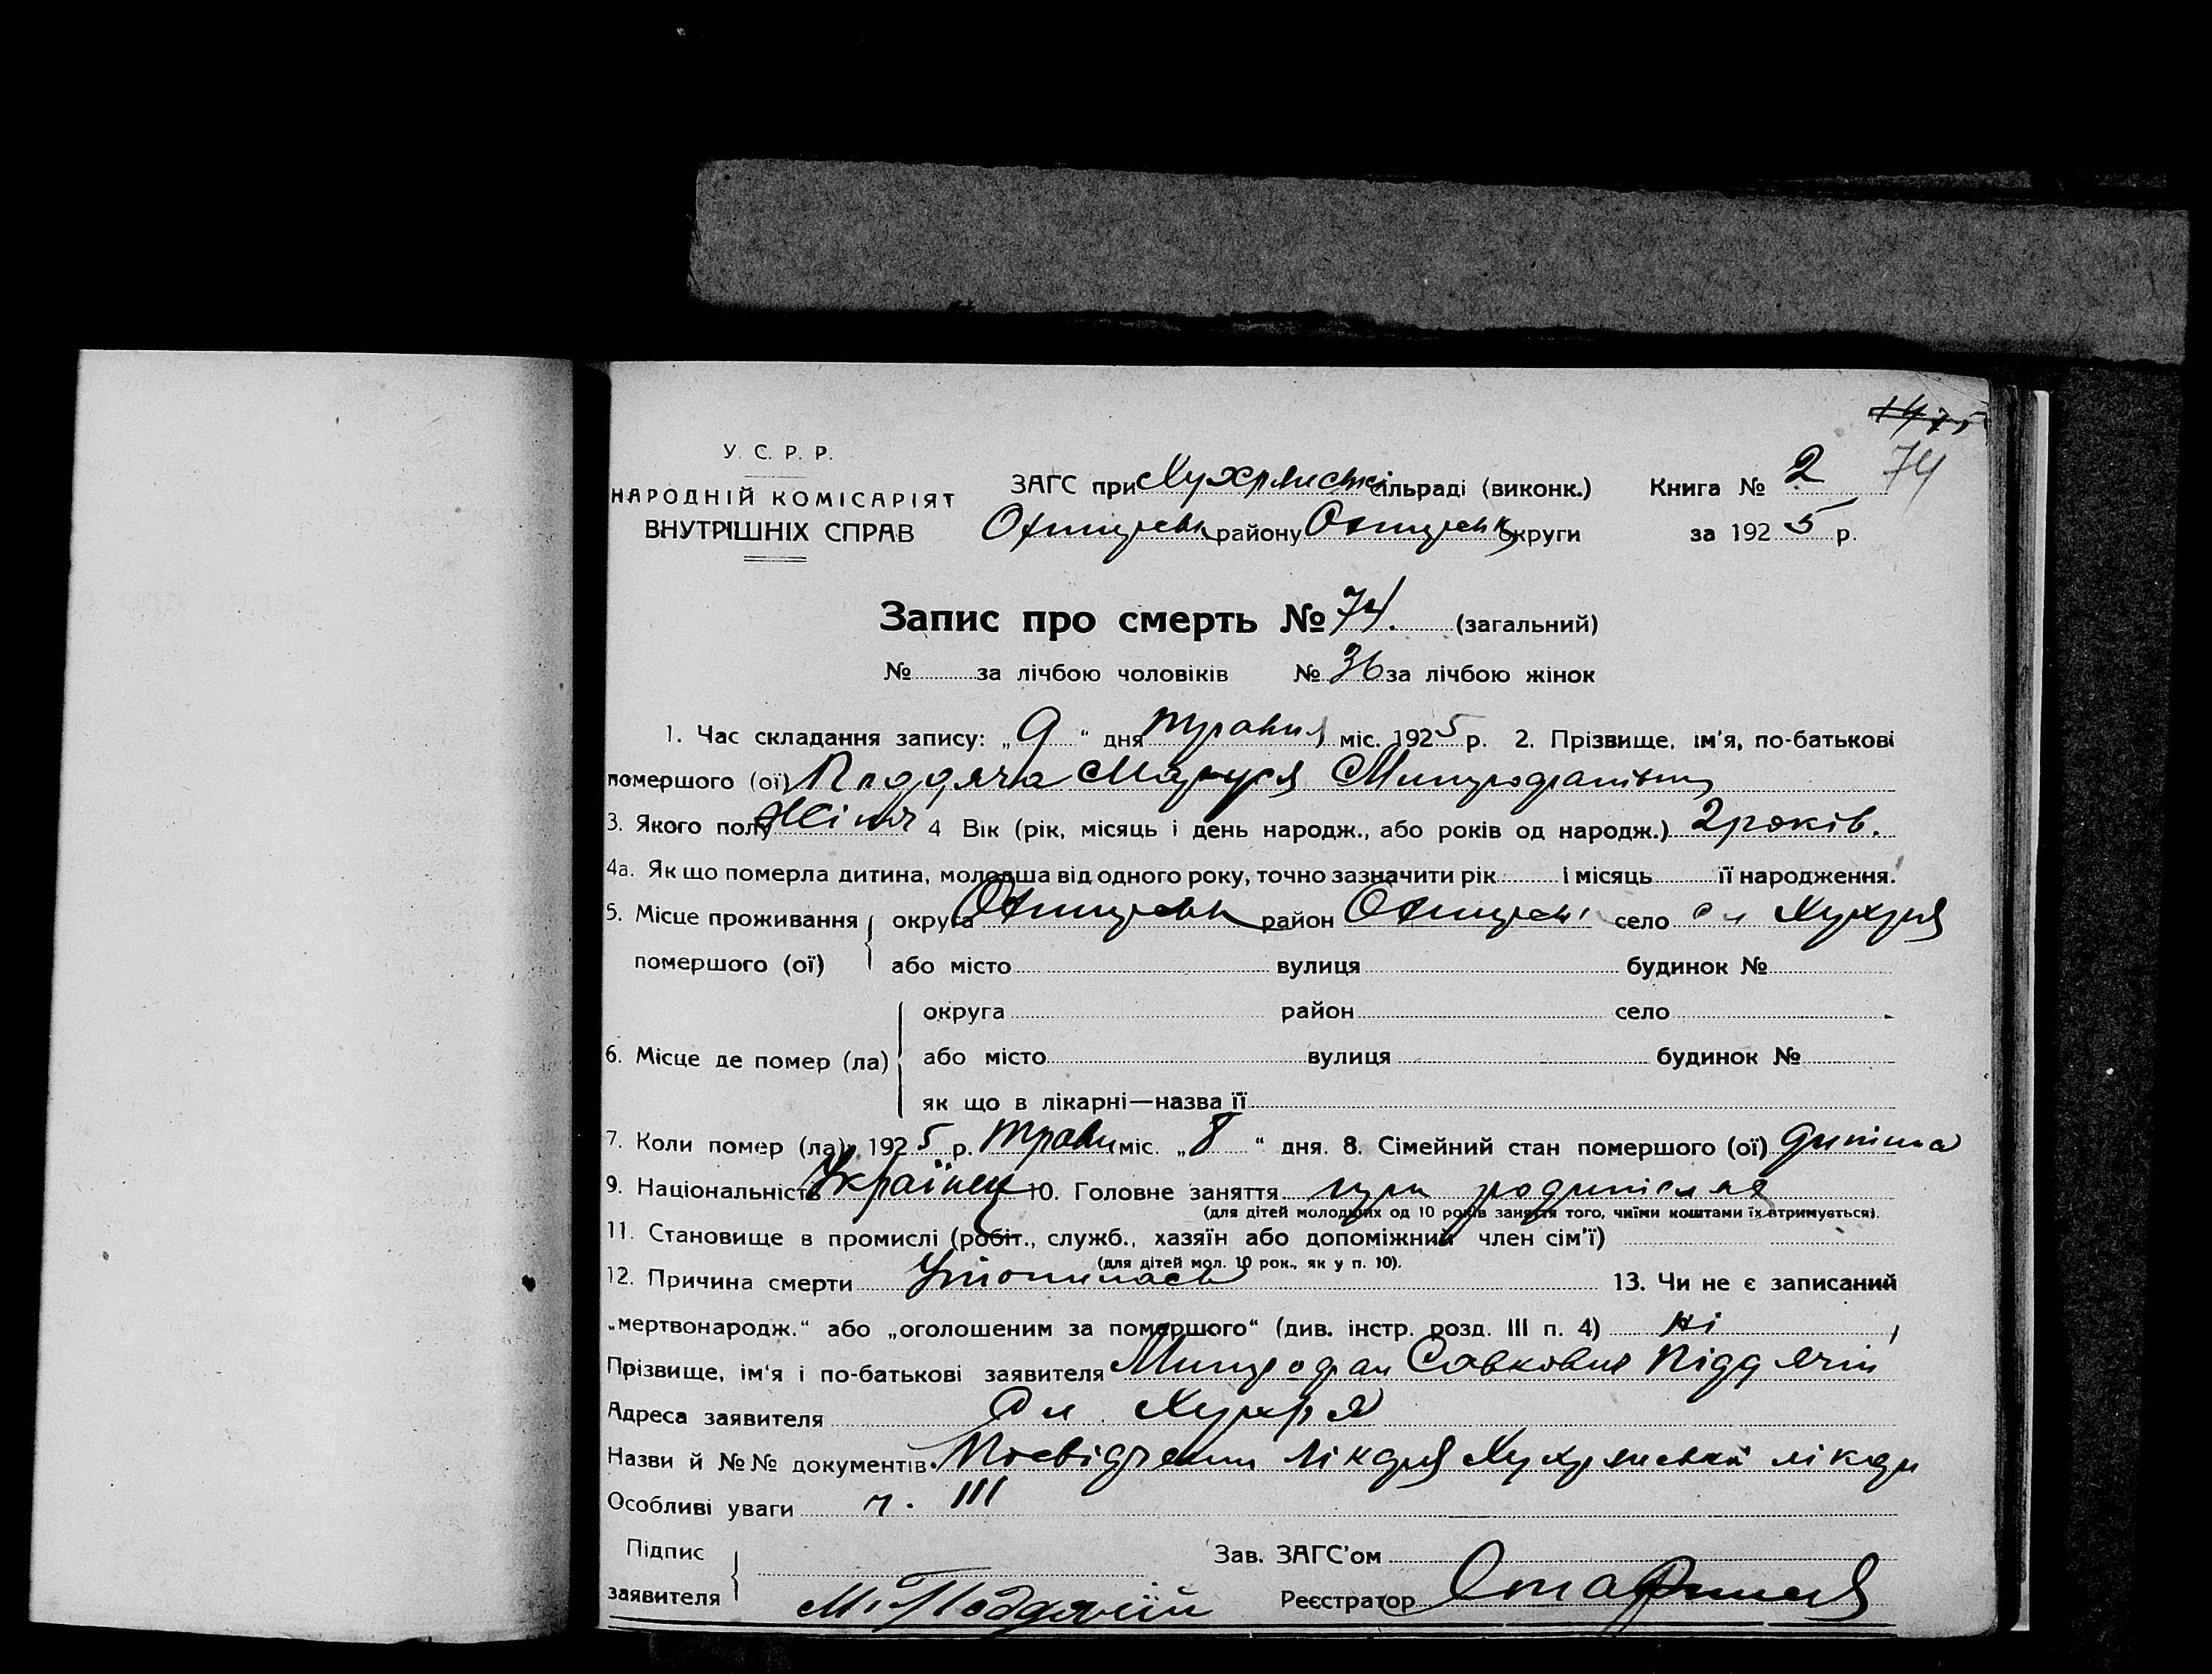 74
У. С. Р. Р.
НАРОДНІЙ КОМІСАРІЯТ
ВНУТРІШНІХ СПРАВ
ЗАГС при Хухрянськ сільраді (виконк.) Книга № 2
Охтирськ району Охтирськ округи за 1925 р.
Запис про смерть № 74. (загальний)
№ за лічбою чоловіків № 36 за лічбою жінок
1. Час складання запису: „9“ дня травня міс. 1925 р. 2. Прізвище, ім'я, по-батькові
помершого (ої) Піддяча Маруся Митрофанівна
3. Якого полу Жіноч 4 Вік (рік, місяць і день народж., або років од народж.) 2 років.
4а. Як що померла дитина, молодша від одного року, точно зазначити рік і місяць її народження.
5. Місце проживання округа Охтирськ район Охтирськ село сл Хухря
помершого (ої) або місто вулиця будинок №
округа район село
6. Місце де помер (ла) або місто вулиця будинок №
як що в лікарні—назва її
7. Коли помер (ла) 1925 р. травн міс. „8“ дня. 8. Сімейний стан помершого (ої) дитина
9. Національність Українец 10. Головне заняття при родителях
(для дітей молодших од 10 років заняття того, чиїми коштами їх втримується).
11. Становище в промислі (робіт., служб., хазяїн або допоміжний член сім'ї)
(для дітей мол. 10 рок., як у п. 10).
12. Причина смерти Утопилась 13. Чи не є записаний
„мертвонародж.“ або „оголошеним за помершого“ (див. інстр. розд. III п. 4) ні
Прізвище, ім'я і по-батькові заявителя Митрофан Савкович Піддячий
Адреса заявителя Сл. Хухря
Назви й №№ документів Посвідчення лікаря Хухрянської лікар
Особливі уваги ч. III
Підпис Зав. ЗАГС'ом
заявителя М. Поддячий Реєстратор